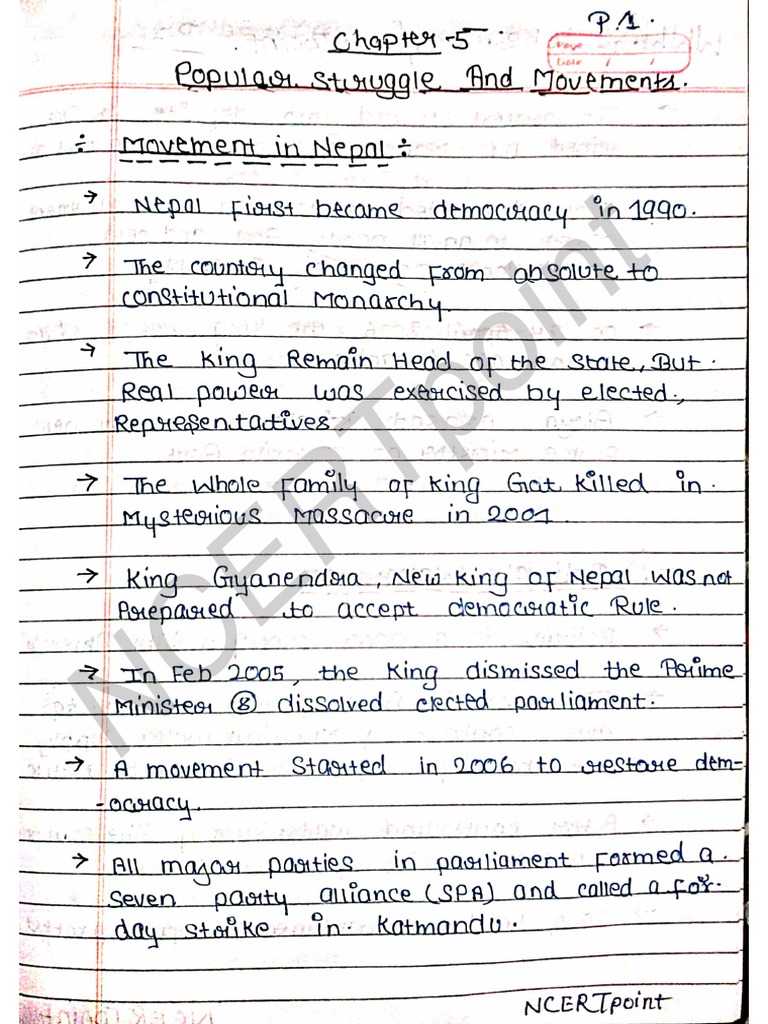 P.1.
Chapter-5
Page
Date / /
Popular Struggle And Movements.
÷ Movement in Nepal ÷
→ Nepal First became democracy in 1990.
→ The country changed from absolute to
constitutional Monarchy.
→ The King Remain Head of the State, But
Real power was exercised by elected,
Representatives.
→ The Whole Family of King Got Killed in
Mysterious Massacre in 2001
→ King Gyanendra, New King of Nepal was not
Prepared to accept democratic Rule.
→ In Feb 2005, the King dismissed the Prime
Minister & dissolved elected parliament.
→ A movement Started in 2006 to restore dem-
-ocracy.
→ All major parties in parliament Formed a
Seven party alliance (SPA) and called a for
day strike in Katmandu.
NCERTpoint
NCERTpoint